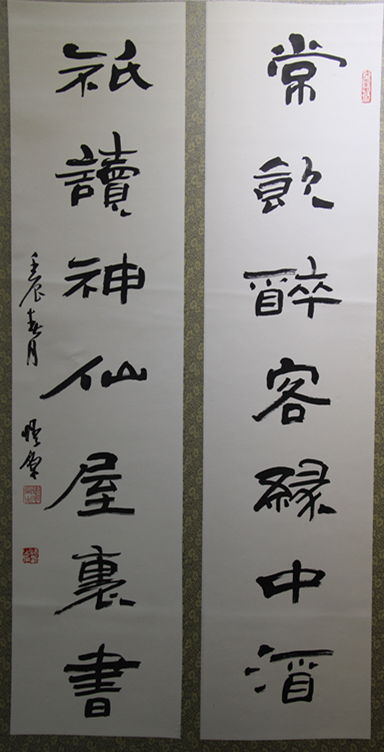 常飲醉客緣中酒
祇讀神仙屋裏書
壬辰春月